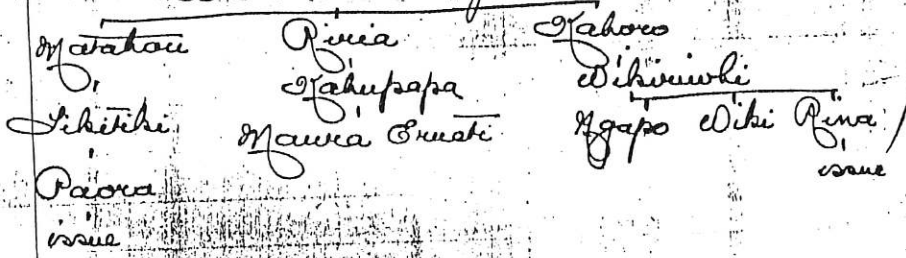 Matahou Riria Kahoro
Kahupapa Wikiriwhi
Tikitiki Maura Erueti Ngapo Wiki Rina
issue
Paora
issue